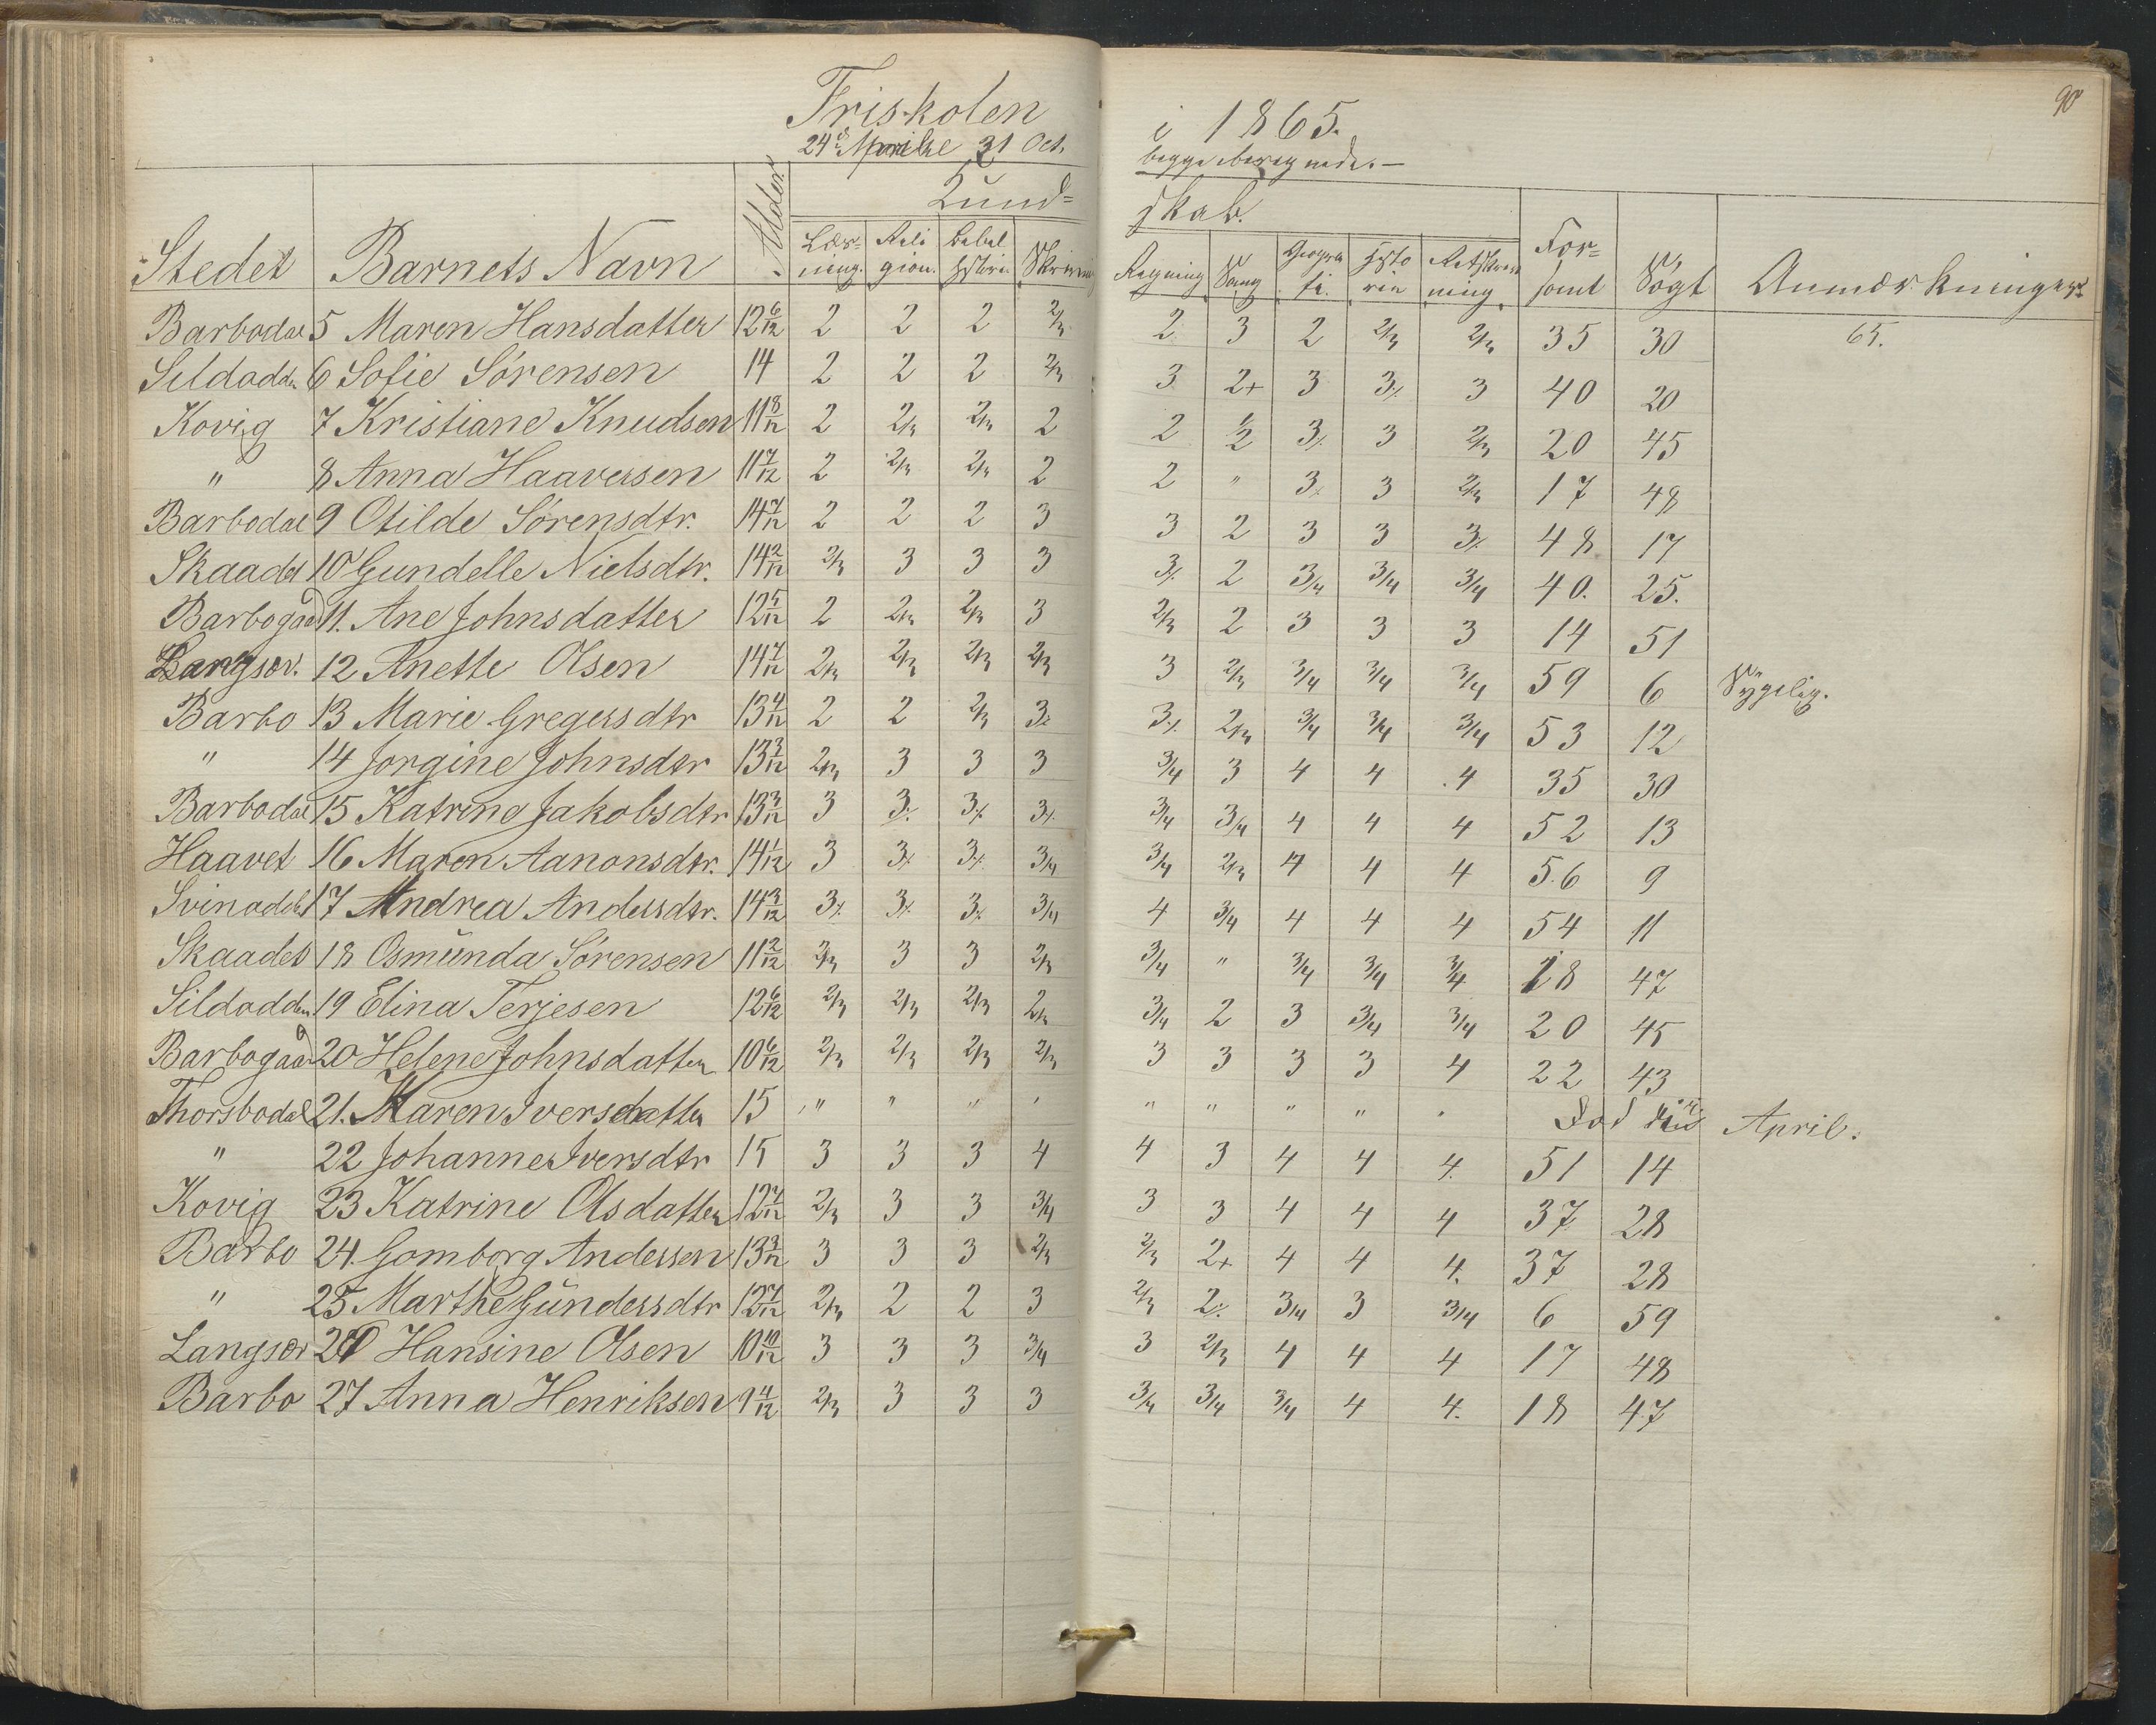 90
Friskolen i 1865.
24de April 31 Oct. begge beregnede. —
Kund= skab.
Stedet Barnets Navn Alder Læs= ning. Reli gion. Bibel Hstorie Skrivning Regning Sang Geogra fi. Histo rie Retskriv ning For= sømt Søgt Anmærkninger
Barbodal 5 Maren Hansdatter 12 6/12 2 2 2 2/3 2 3 2 2/3 2/3 35 30 65.
Sildodden 6 Sofie Sörensen 14 2 2 2 2/3 3 2+ 3 3% 3 40 20
Kovig 7 Kristiane Knudsen 11 8/12 2 2/3 2/3 2 2 ½ 3% 3 2/3 20 45
" 8 Anna Haaversen 11 7/12 2 2/3 2/3 2 2 " 3% 3 2/3 17 48
Barbodal 9 Otilde Sörensdtr. 14 7/12 2 2 2 3 3 2 3 3 3% 48 17
Skaadet 10 Gundelle Nielsdtr. 14 2/12 2/3 3 3 3 3% 2 3/4 3/4 3/4 40. 25.
Barbogaard 11. Ane Johnsdatter 12 5/12 2 2/3 2/3 3 2/3 2 3 3 3 14 51
Langsæv. 12 Anette Olsen 14 7/12 2/3 2/3 2/3 2/3 3 2/3 3/4 3/4 3/4 59 6 Sygelig.
Barbo 13 Marie Gregersdtr 13 4/12 2 2 2/3 3% 3% 2/3 3/4 3/4 3/4 53 12
" 14 Jorgine Johnsdtr 13 3/12 2/3 3 3 3 3/4 3 4 4 4 35 30
Barbodal 15 Katrine Jakobsdtr 13 3/12 3 3% 3% 3% 3/4 3/4 4 4 4 52 13
Haavet 16 Maren Aanonsdtr. 14 1/12 3 3% 3% 3/4 3/4 2/3 4 4 4 56 9
Svinodden 17 Andrea Andersdtr. 14 3/12 3% 3% 3% 3/4 4 3/4 4 4 4 54 11
Skaadet 18 Osmunda Sörensen 11 2/12 2/3 3 3 2/3 3/4 " 3/4 3/4 3/4 18 47
Sildodden 19 Elina Terjesen 12 6/12 2/3 2/3 2/3 2/3 3/4 2 3 3/4 3/4 20 45
Barbogaard 20 Helene Johnsdatter 10 6/12 2/3 2/3 2/3 2/3 3 3 3 3 4 22 43
Thorsbodal 21. Maren Iversdatter 15 " " " " " " " " " Død April.
" 22 Johanne Iversdtr 15 3 3 3 4 4 3 4 4 4. 51 14
Kovig 23 Katrine Olsdatter 12 7/12 2/3 3 3 3/4 3 3 4 4 4 37 28
Barbo 24. Gomborg Andersen 13 3/12 3 3 3 2/3 2/3 2+ 4 4 4. 37 28
" 25 Marthe Gundersdtr 12 7/12 2/3 2 2 3 2/3 2% 3/4 3 3/4 6 59
Langsæv 26 Hansine Olsen 10 10/12 3 3 3 3/4 3 2/3 4 4 4 17 48
Barbo 27 Anna Henriksen 9 4/12 2/3 3 3 3 3/4 3/4 3/4 4 4. 18 47